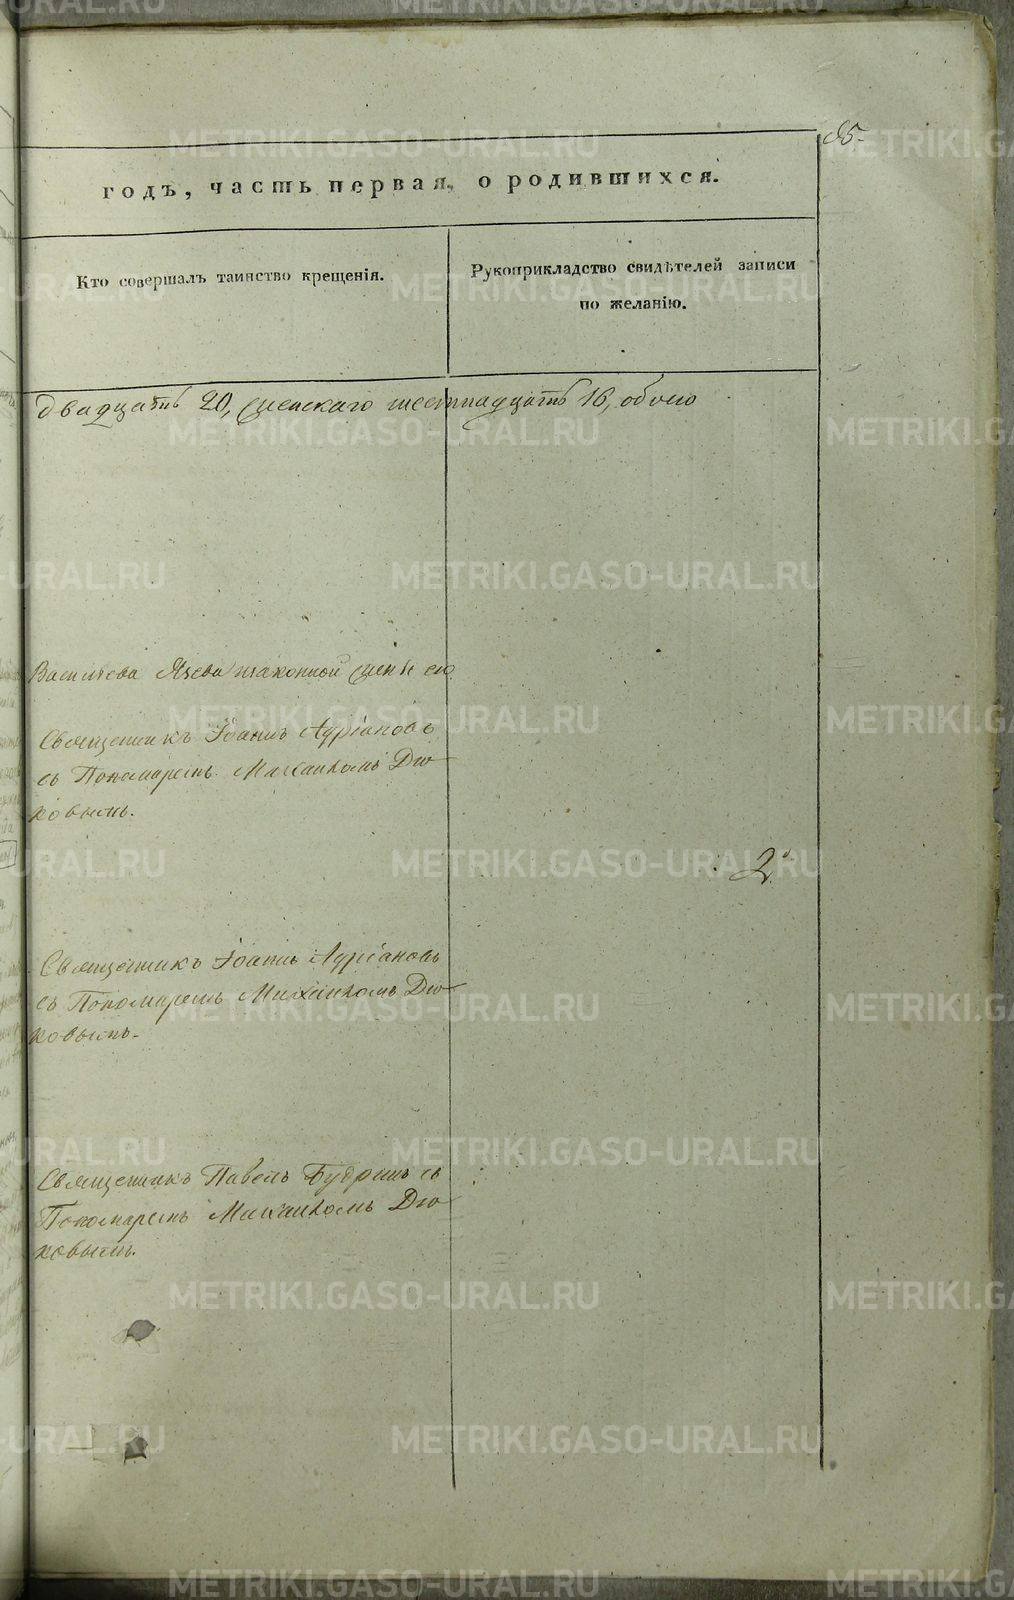 85.
годъ, часть первая, о родившихся.
Кто совершалъ таинство крещенія.
Рукоприкладство свидѣтелей записи
по желанію.
двадцать 20, женскаго шестнадцать 16, обоего
Васильева законной жены его
Священникъ Іоаннъ
съ Пономаремъ Михаиломъ Дю-
ковымъ.
2.
Священникъ Іоаннъ
съ Пономаремъ Михаиломъ Дю-
ковымъ.
Священникъ Павелъ Будринъ съ
Пономаремъ Михаиломъ Дю-
ковымъ.
METRIKI.GASO-URAL.RU